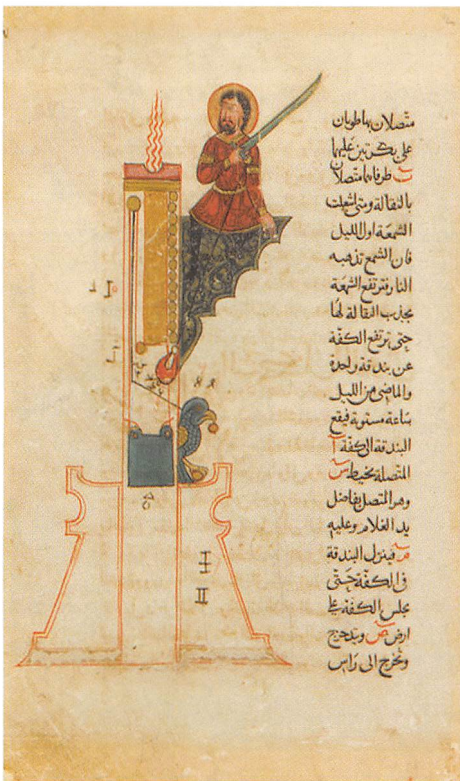 متصلان بها طويان
على بكرتين عليها
طرفاهما متصلان
بالثقالة ومتى اشعلت
الشمعة اول الليل
فان الشمع تذهبه
النار فترتفع الشمعة
بجذب الثقالة لها
حتى ترتفع الكفة
عن بندقة واحدة
والماضى من الليل
ساعة مستوية فيقع
البندقة الى الكفة
المتصلة بخيط س
وهو المتصل بفاضل
يد الغلام وعليه
فينزل البندقة
فى الكفة حتى
يجلس الكفة على
ارض ص ويتدحرج
وتخرج الى راس